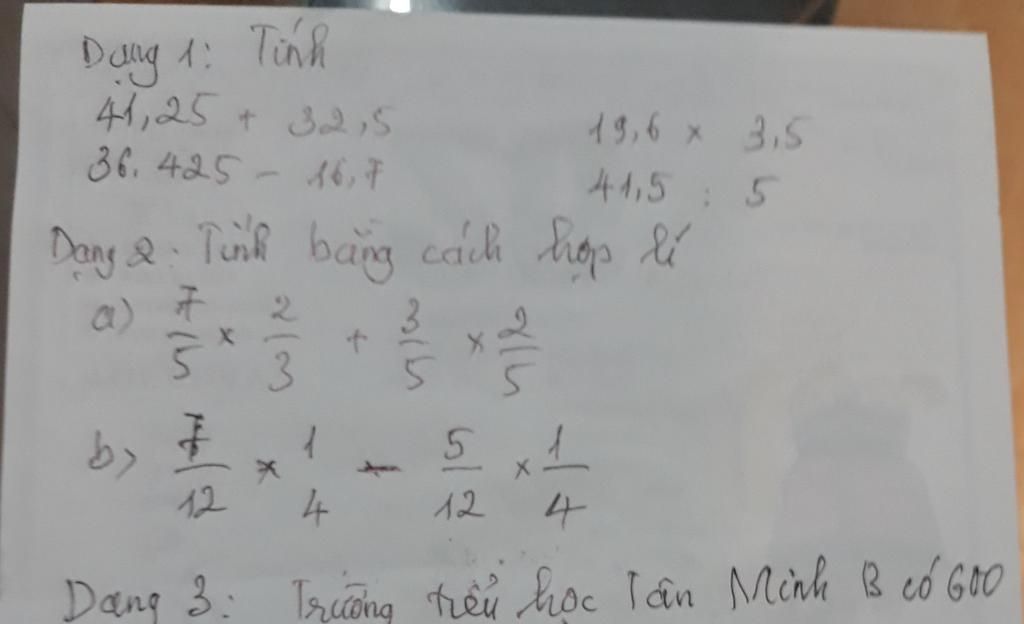 Dạng 1: Tính
41,25 + 32,5 19,6 × 3,5
36.425 - 16,7 41,5 : 5
Dạng 2. Tính bằng cách hợp lí
a) 7/5 × 2/3 + 3/5 × 2/5
b) 7/12 × 1/4 - 5/12 × 1/4
Dạng 3: Trường tiểu học Tân Minh B có 600